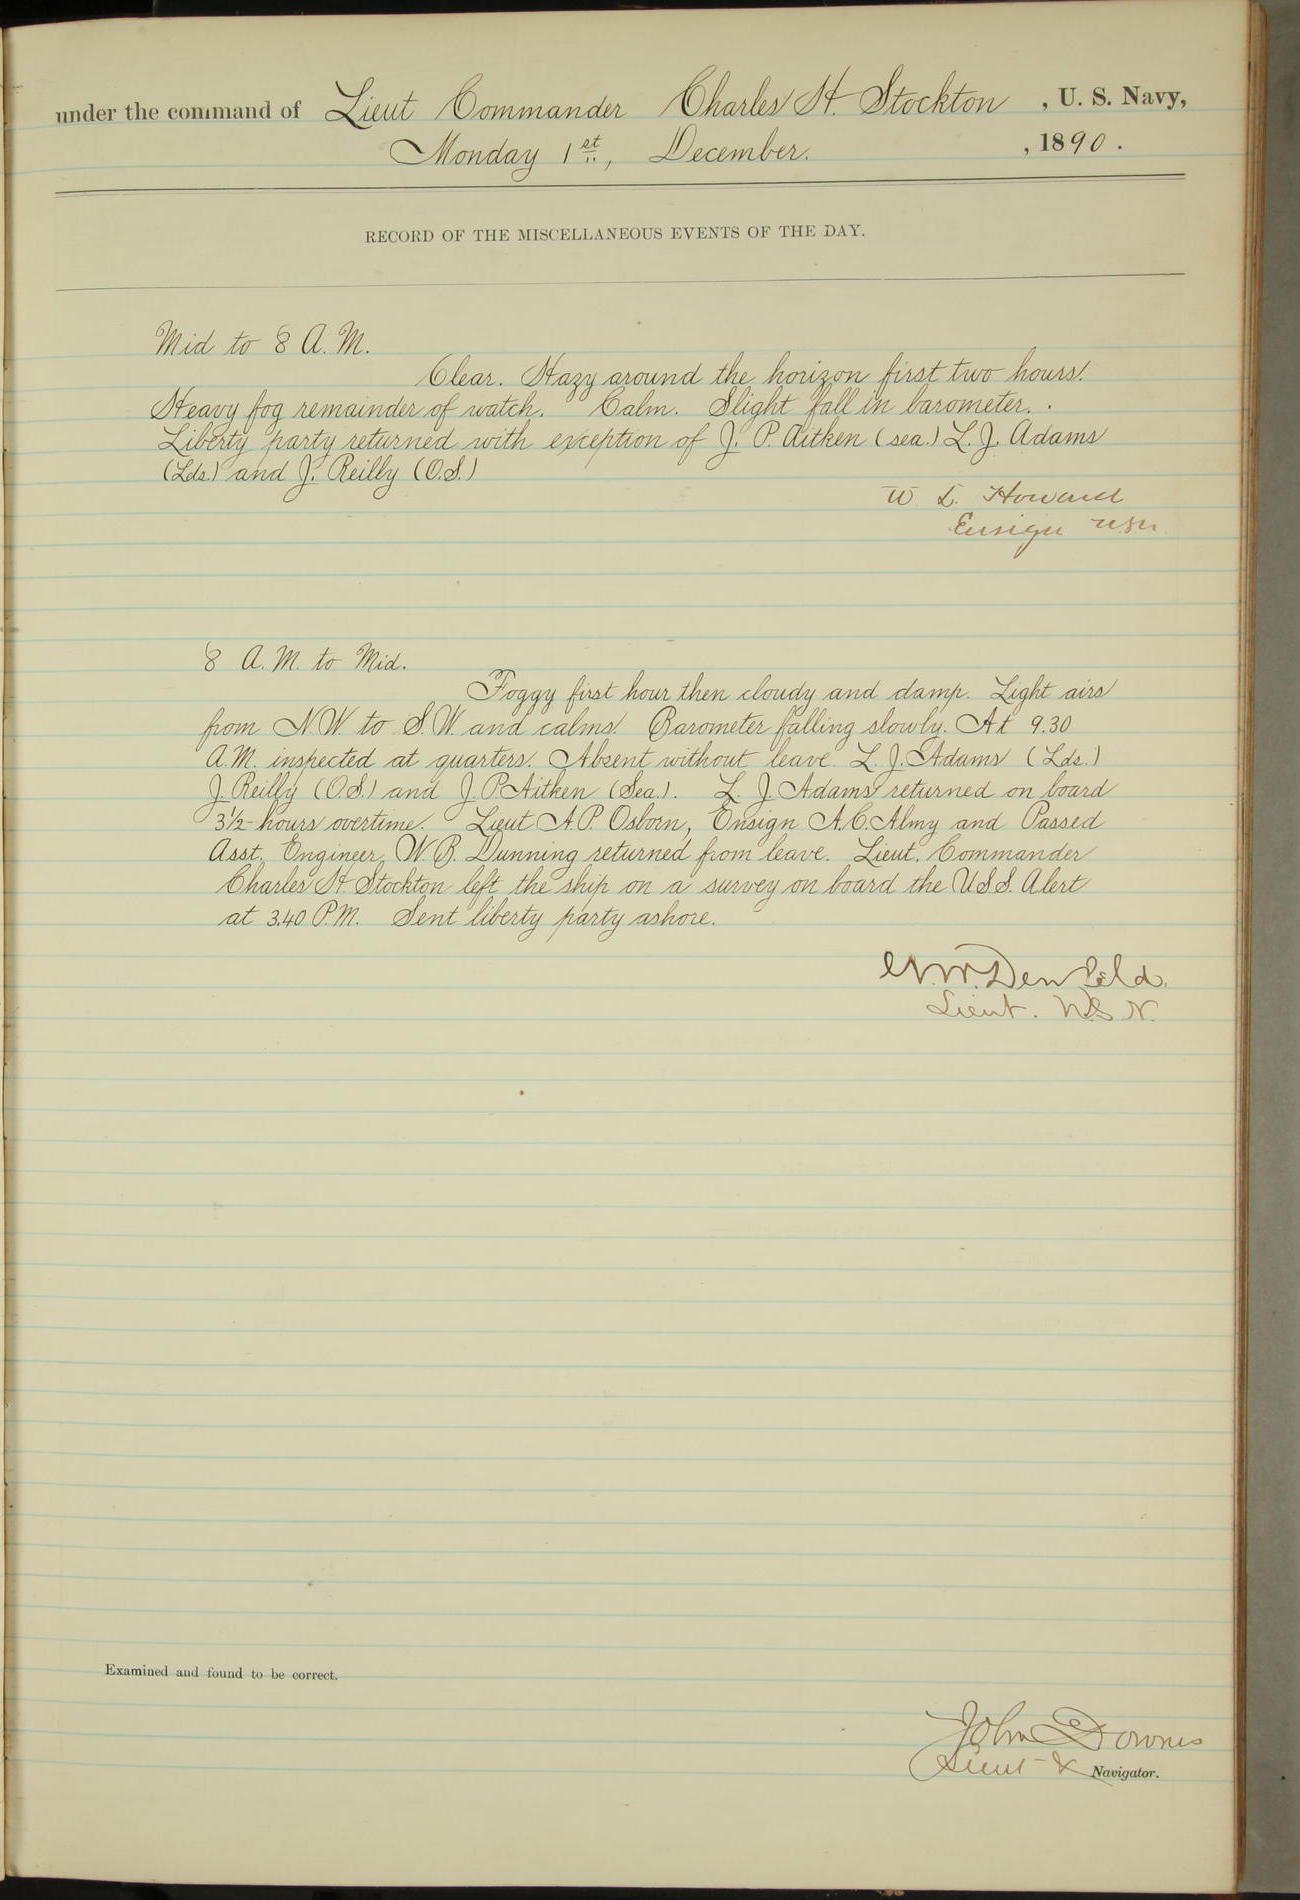 under the command of Lieut Commander Charles H. Stockton, U. S. Navy,
Monday 1st, December. , 1890.
RECORD OF THE MISCELLANEOUS EVENTS OF THE DAY.
Mid to 8 A.M.
Clear. Hazy around the horizon first two hours.
Heavy fog remainder of watch. Calm. Slight fall in barometer.
Liberty party returned with exception of J. P. Aitken (sea.) L. J. Adams
(Lds.) and J. Reilly (O.S.)
W L. Howard
Ensign USN.
8 A.M. to Mid.
Foggy first hour then cloudy and damp. Light airs
from N.W. to S.W. and calms. Barometer falling slowly. At 9.30
A.M. inspected at quarters. Absent without leave. L. J. Adams (Lds.)
J. Reilly (O.S.) and J. P. Aitken (Sea.). L. J. Adams returned on board
3 1/2 hours overtime. Lieut A.P. Osborn, Ensign A.C. Almy and Passed
Asst. Engineer W. B. Dunning returned from leave. Lieut. Commander
Charles H. Stockton left the ship on a survey on board the U.S.S. Alert
at 3.40 P.M. Sent liberty party ashore.
Denfeld.
Lieut. U.S.N.
Examined and found to be correct.
John Downes
Lieut & Navigator.